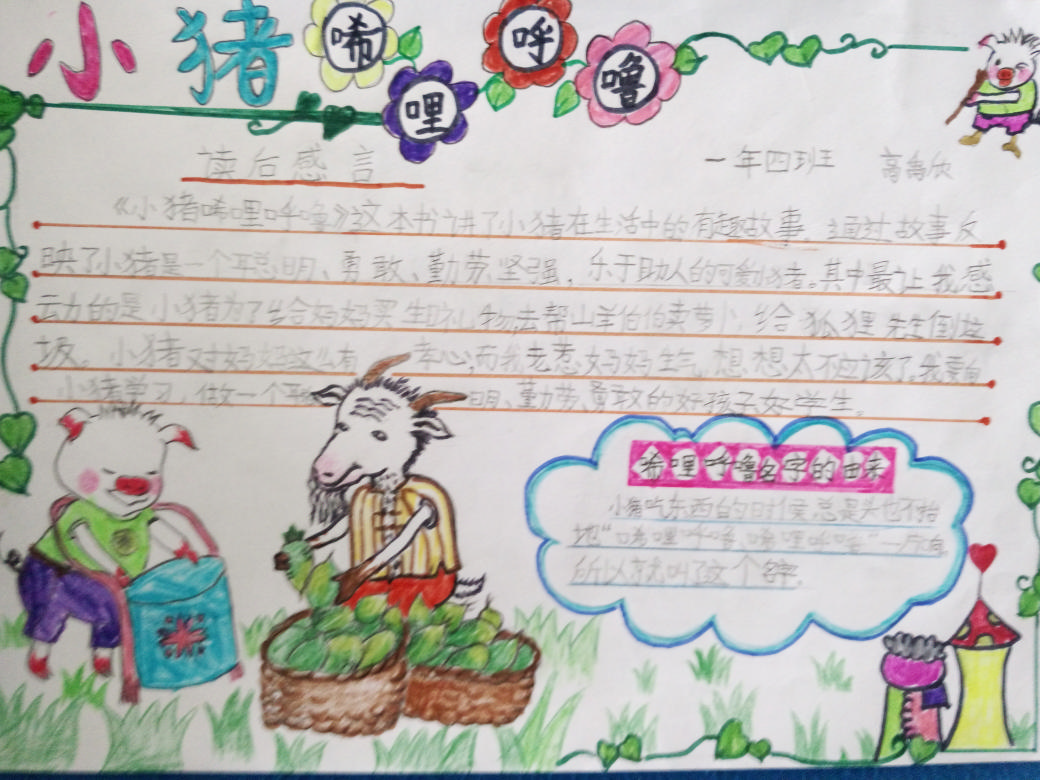 小猪唏哩呼噜
读后感言
一年四班 高禹欣
《小猪唏哩呼噜》这本书讲了小猪在生活中的有趣故事,通过故事反
映了小猪是一个聪明、勇敢、勤劳、坚强,乐于助人的可爱小猪。其中最让我感
动的是小猪为了给妈妈买生日礼物,去帮山羊伯伯卖萝卜,给狐狸先生倒垃
圾。小猪对妈妈这么有孝心,而我老惹妈妈生气,想想太不应该了,我要向
小猪学习,做一个聪明、勤劳、勇敢的好孩子好学生。
希哩呼噜名字的由来
小猪吃东西的时候,总是头也不抬
地"唏哩呼噜,唏哩呼噜"一片响,
所以就叫了这个名字。